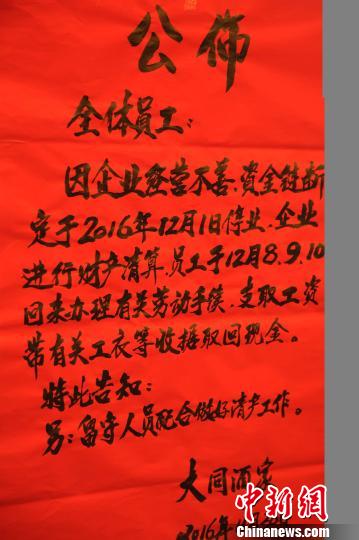 公佈
全体员工:
因企业经营不善、资金链断
定于2016年12月1日停业、企业
进行财产清算、员工于12月8.9.10
回来办理有关劳动手续、支取工资
带有关工衣等收据取回现金。
特此告知:
另:留守人员配合做好清产工作。
大同酒家
2016年
中新网
Chinanews.com